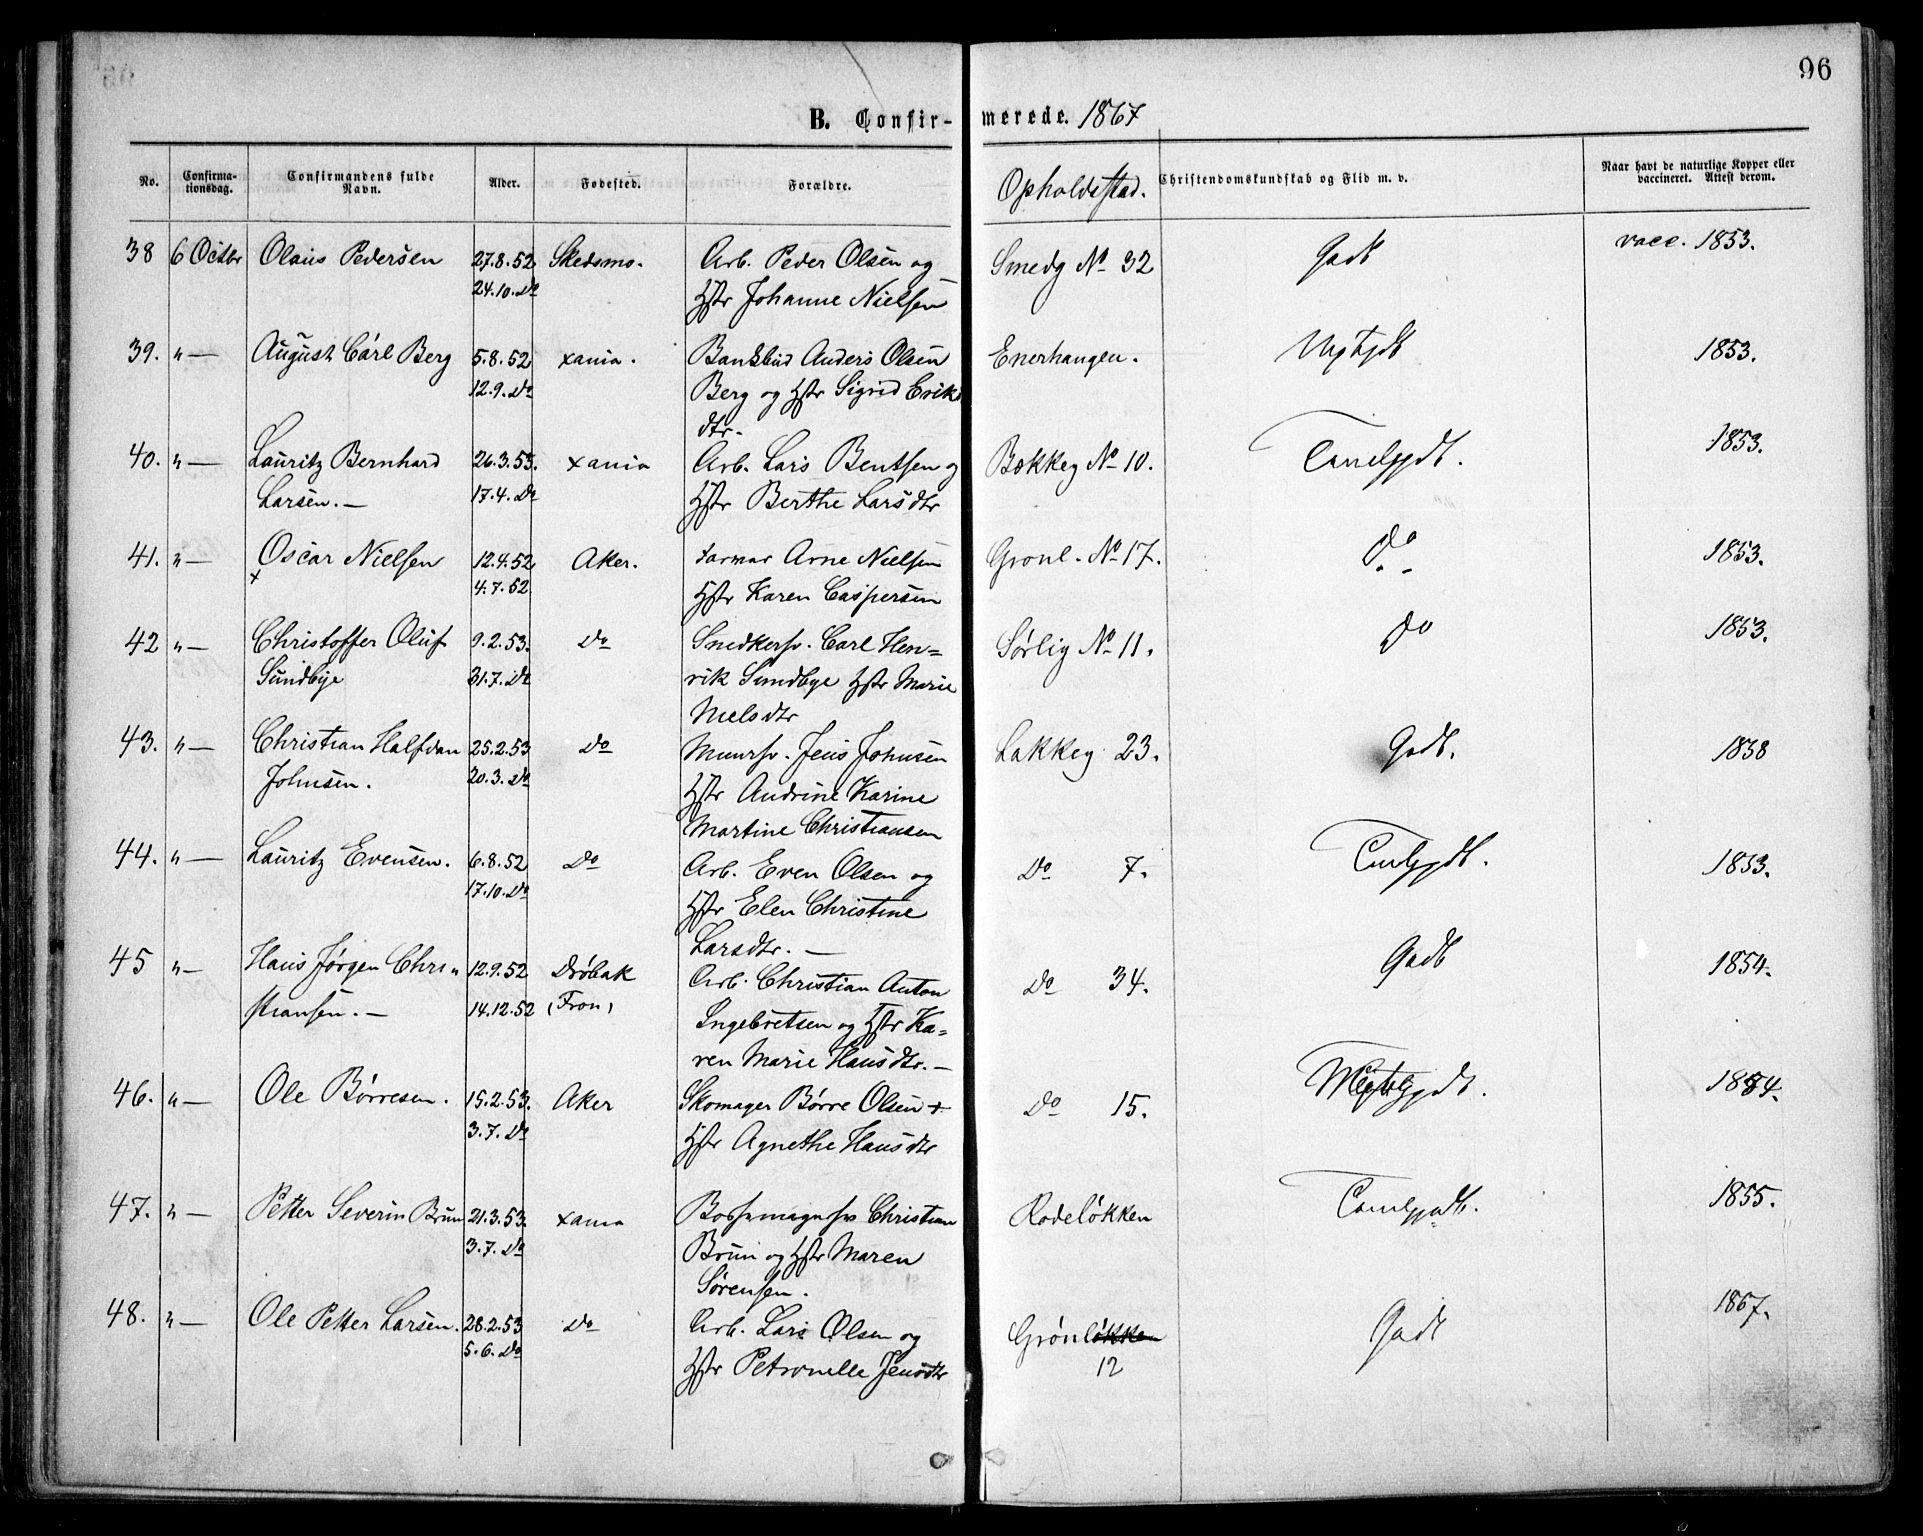 96
B. Confir- merede. 1867
No. Confirma-
tionsdag. Confirmandens fulde
Navn. Alder. Fødested. Forældre. Opholdssted. Christendomskundskab og Flid m. v. Naar havt de naturlige Kopper eller
vaccineret. Attest derom.
38 6 Octbr Olaus Pedersen 27.8.52 Skedsmo. Arb. Peder Olsen og Smedg No 32 Godt vacc. 1853.
24.10. Do Hstr Johanne Nielsen
39. " — August Carl Berg 5.8.52 xania. Bankbud Anders Olsen Enerhaugen. 1853.
12.9. Do Berg og Hstr Sigrid Eriks
dtr.
40. " — Lauritz Bernhard 26.3.53. xania Arb. Lars Bentsen og Bækkeg No 10. 1853.
Larsen. — 17.4. Do Hstr Berthe Larsdtr
41. " — Oscar Nielsen 12.4.52 Aker. Arne Nielsen Grønl. No 17. Do 1853.
x 4.7.52 Hstr Karen Caspersen
42 " — Christoffer Oluf 9.2.53. Do Snedkersv. Carl Hen= Sørlig No 11. Do 1853.
Sundbye 31.7. Do rik Sundbye Hstr Marie
Nielsdtr
43. " — Christian Halfdan 25.2.53 Do Muursv. Jens Johnsen Lakkeg 23. Godt. 1858
Johnsen. 20.3. Do Hstr Andrine Karine
Martine Christiansen
44. " — Lauritz Evensen. 6.8.52 Do Arb. Even Olsen og Do 7. 1853.
17.10. Do Hstr Elen Christine
Larsdtr. —
45 " — Hans Jørgen Chri= 12.9.52 Drøbak Arb. Christian Anton Do 34. Godt 1854.
stiansen. — 14.12.52 (Fron) Ingebretsen og Hstr Ka=
ren Marie Hansdtr. —
46. " — Ole Børresen. 15.2.53. Aker Skomager Børre Olsen + Do 15. 1854.
3.7. Do Hstr Agnethe Hansdtr
47. " — Petter Severin Brun 21.3.53. xania Christian Rodeløkken 1855.
3.7. Do Brun og Hstr Maren
Sørensen.
48. " — Ole Petter Larsen. 28.2.53 Do Arb. Lars Olsen og Grønløkken Godt 1867.
5.6. Do Hstr Petronelle Jensdtr 12